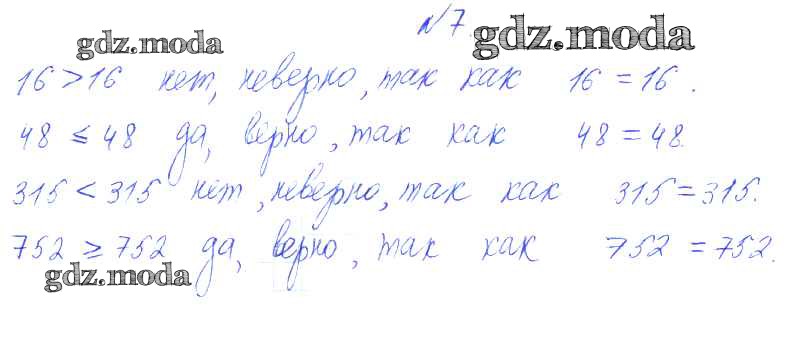 №7.
gdz.moda gdz.moda
16 > 16 нет, неверно, так как 16 = 16.
48 ≤ 48 да, верно, так как 48 = 48.
315 < 315 нет, неверно, так как 315 = 315.
752 ≥ 752 да, верно, так как 752 = 752.
gdz.moda